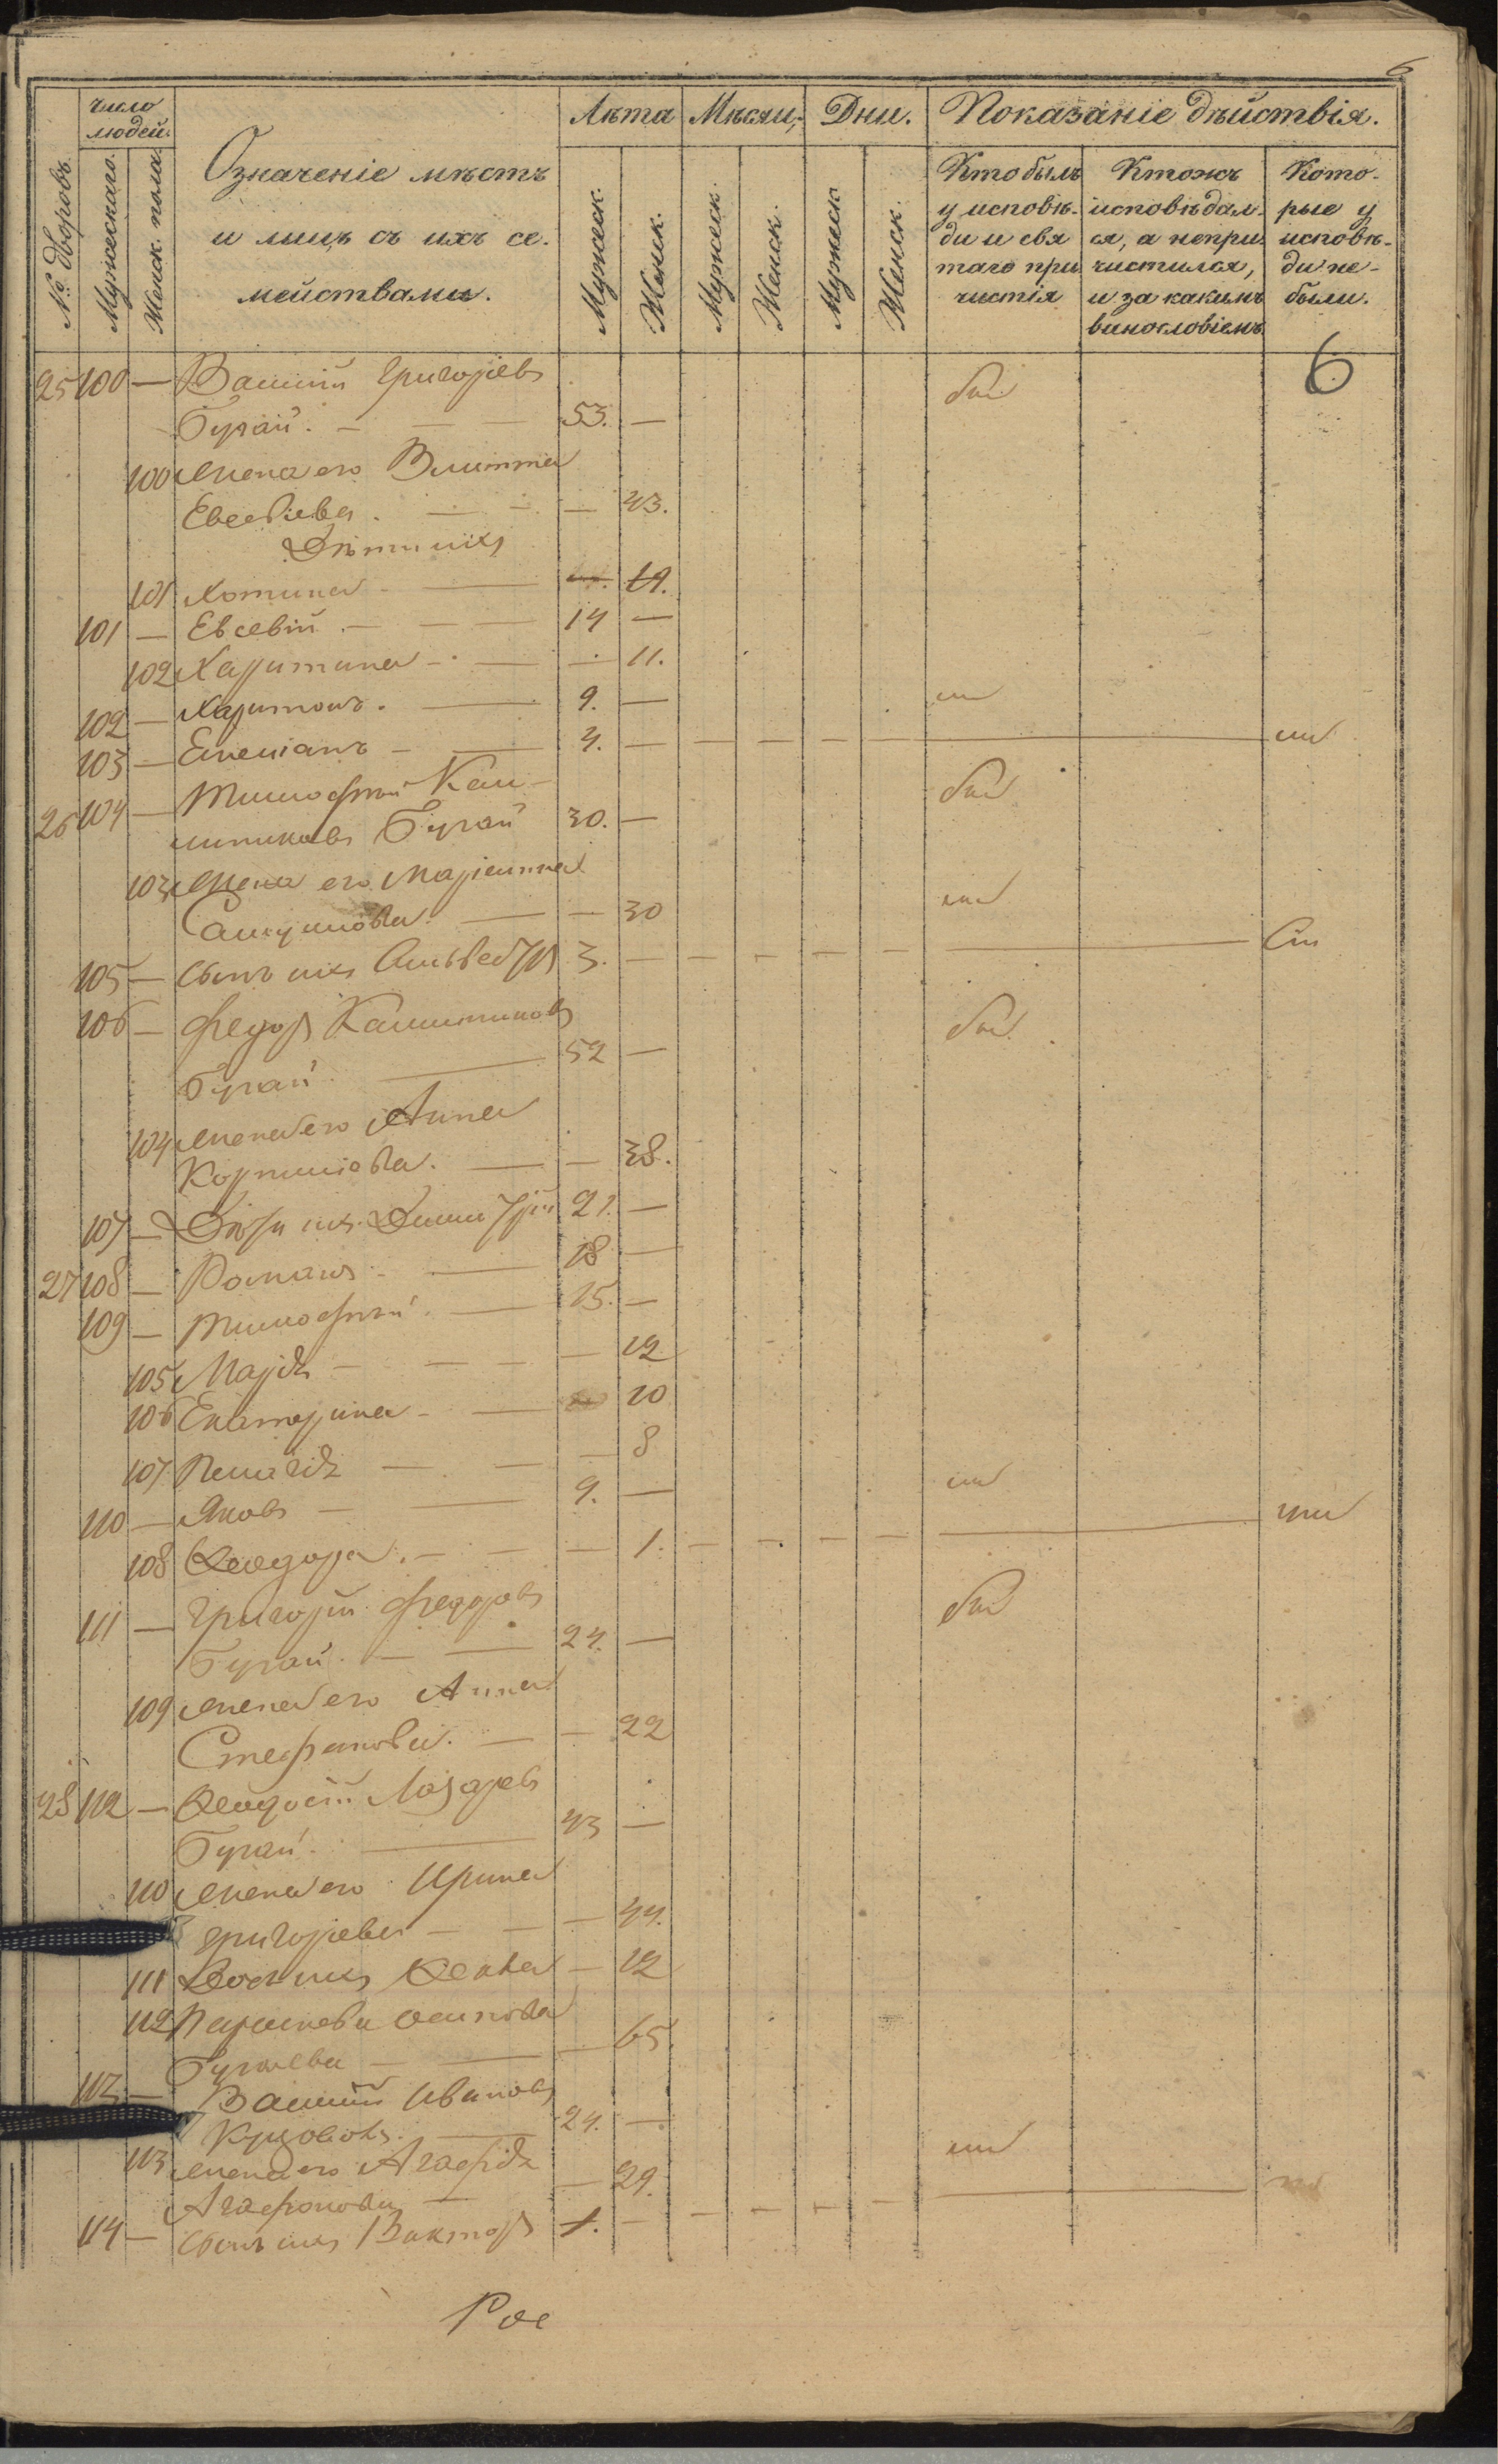 6
№ дворовъ.
Число людей.
Мужескаго.
Женск. пола.
Означеніе мѣстъ
и лицъ съ ихъ се-
мействами.
Лѣта
Мѣсяц.
Дни.
Показаніе дѣйствія.
Мужеск.
Женск.
Мужеск.
Женск.
Мужеск.
Женск.
Кто былъ
у исповѣ-
ди и свя
таго при
частія
Ктожъ
исповѣдал-
ся, а непри
частился,
и за какимъ
винословіемъ
Кото-
рые у
исповѣ-
ди не-
были.
6
25 100 — Василій Григоріевъ
Бугай. — 53. —
100 Жена его
Евсевіева. — 43.
Дѣти ихъ
101 19.
101 — Евсевій. — 14 —
102 Харитина — 11.
102 — Харитонъ. — 9. —
103 — Емеліанъ — 4. —
26 104 — Тимофей Кал-
линиковъ Бугай 30. —
103 Жена его Маріанна
— 30
105 — Сынъ ихъ 3. —
106 — Федоръ Каллиниковъ
Бугай 52 —
104 Жена его Анна
Корниліева. — 38.
107 — Дѣти ихъ Димитрій 21. —
27 108 — Романъ — 18 —
109 — Тимофей. — 15. —
105 Марія — 12
106 Екатерина — 10
107 Пелагія — 8
110 — Яковъ — 9. —
108 Ѳеодора. — 1.
111 — Григорій Федоровъ
Бугай. — 24. —
109 Жена его Анна
Стефанова. — 22
28 112 — Ѳеодосій Лазаревъ
Бугай. — 43 —
110 Жена его Ирина
Григоріева — 44.
111 Дочь ихъ Ѳекла — 12
112 Параскева Осипова
Бугаева — 65.
113 — Василій Ивановъ
24. —
113 Жена его Агафія
Агафонова — 29.
114 — Сынъ ихъ Викторъ 1. —